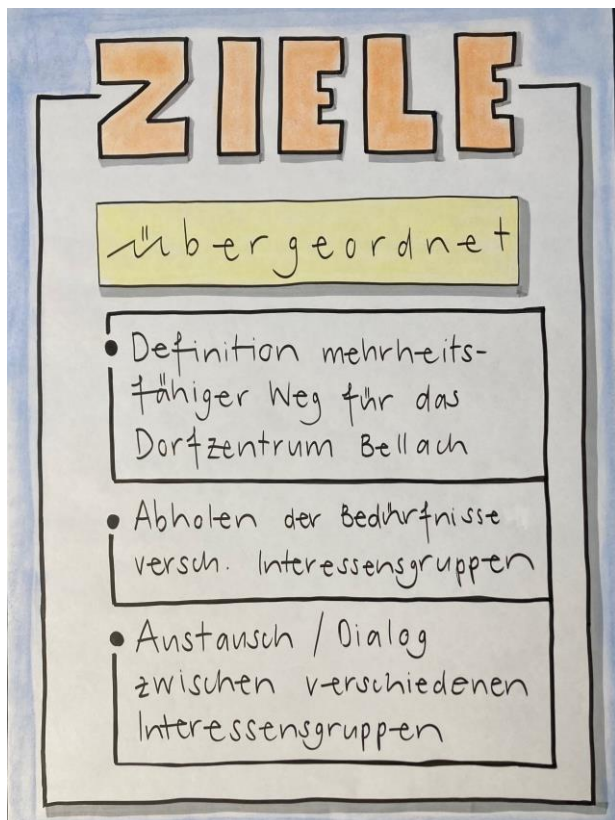 ZIELE
übergeordnet
• Definition mehrheits-
fähiger Weg für das
Dorfzentrum Bellach
• Abholen der Bedürfnisse
versch. Interessensgruppen
• Austausch / Dialog
zwischen verschiedenen
Interessensgruppen